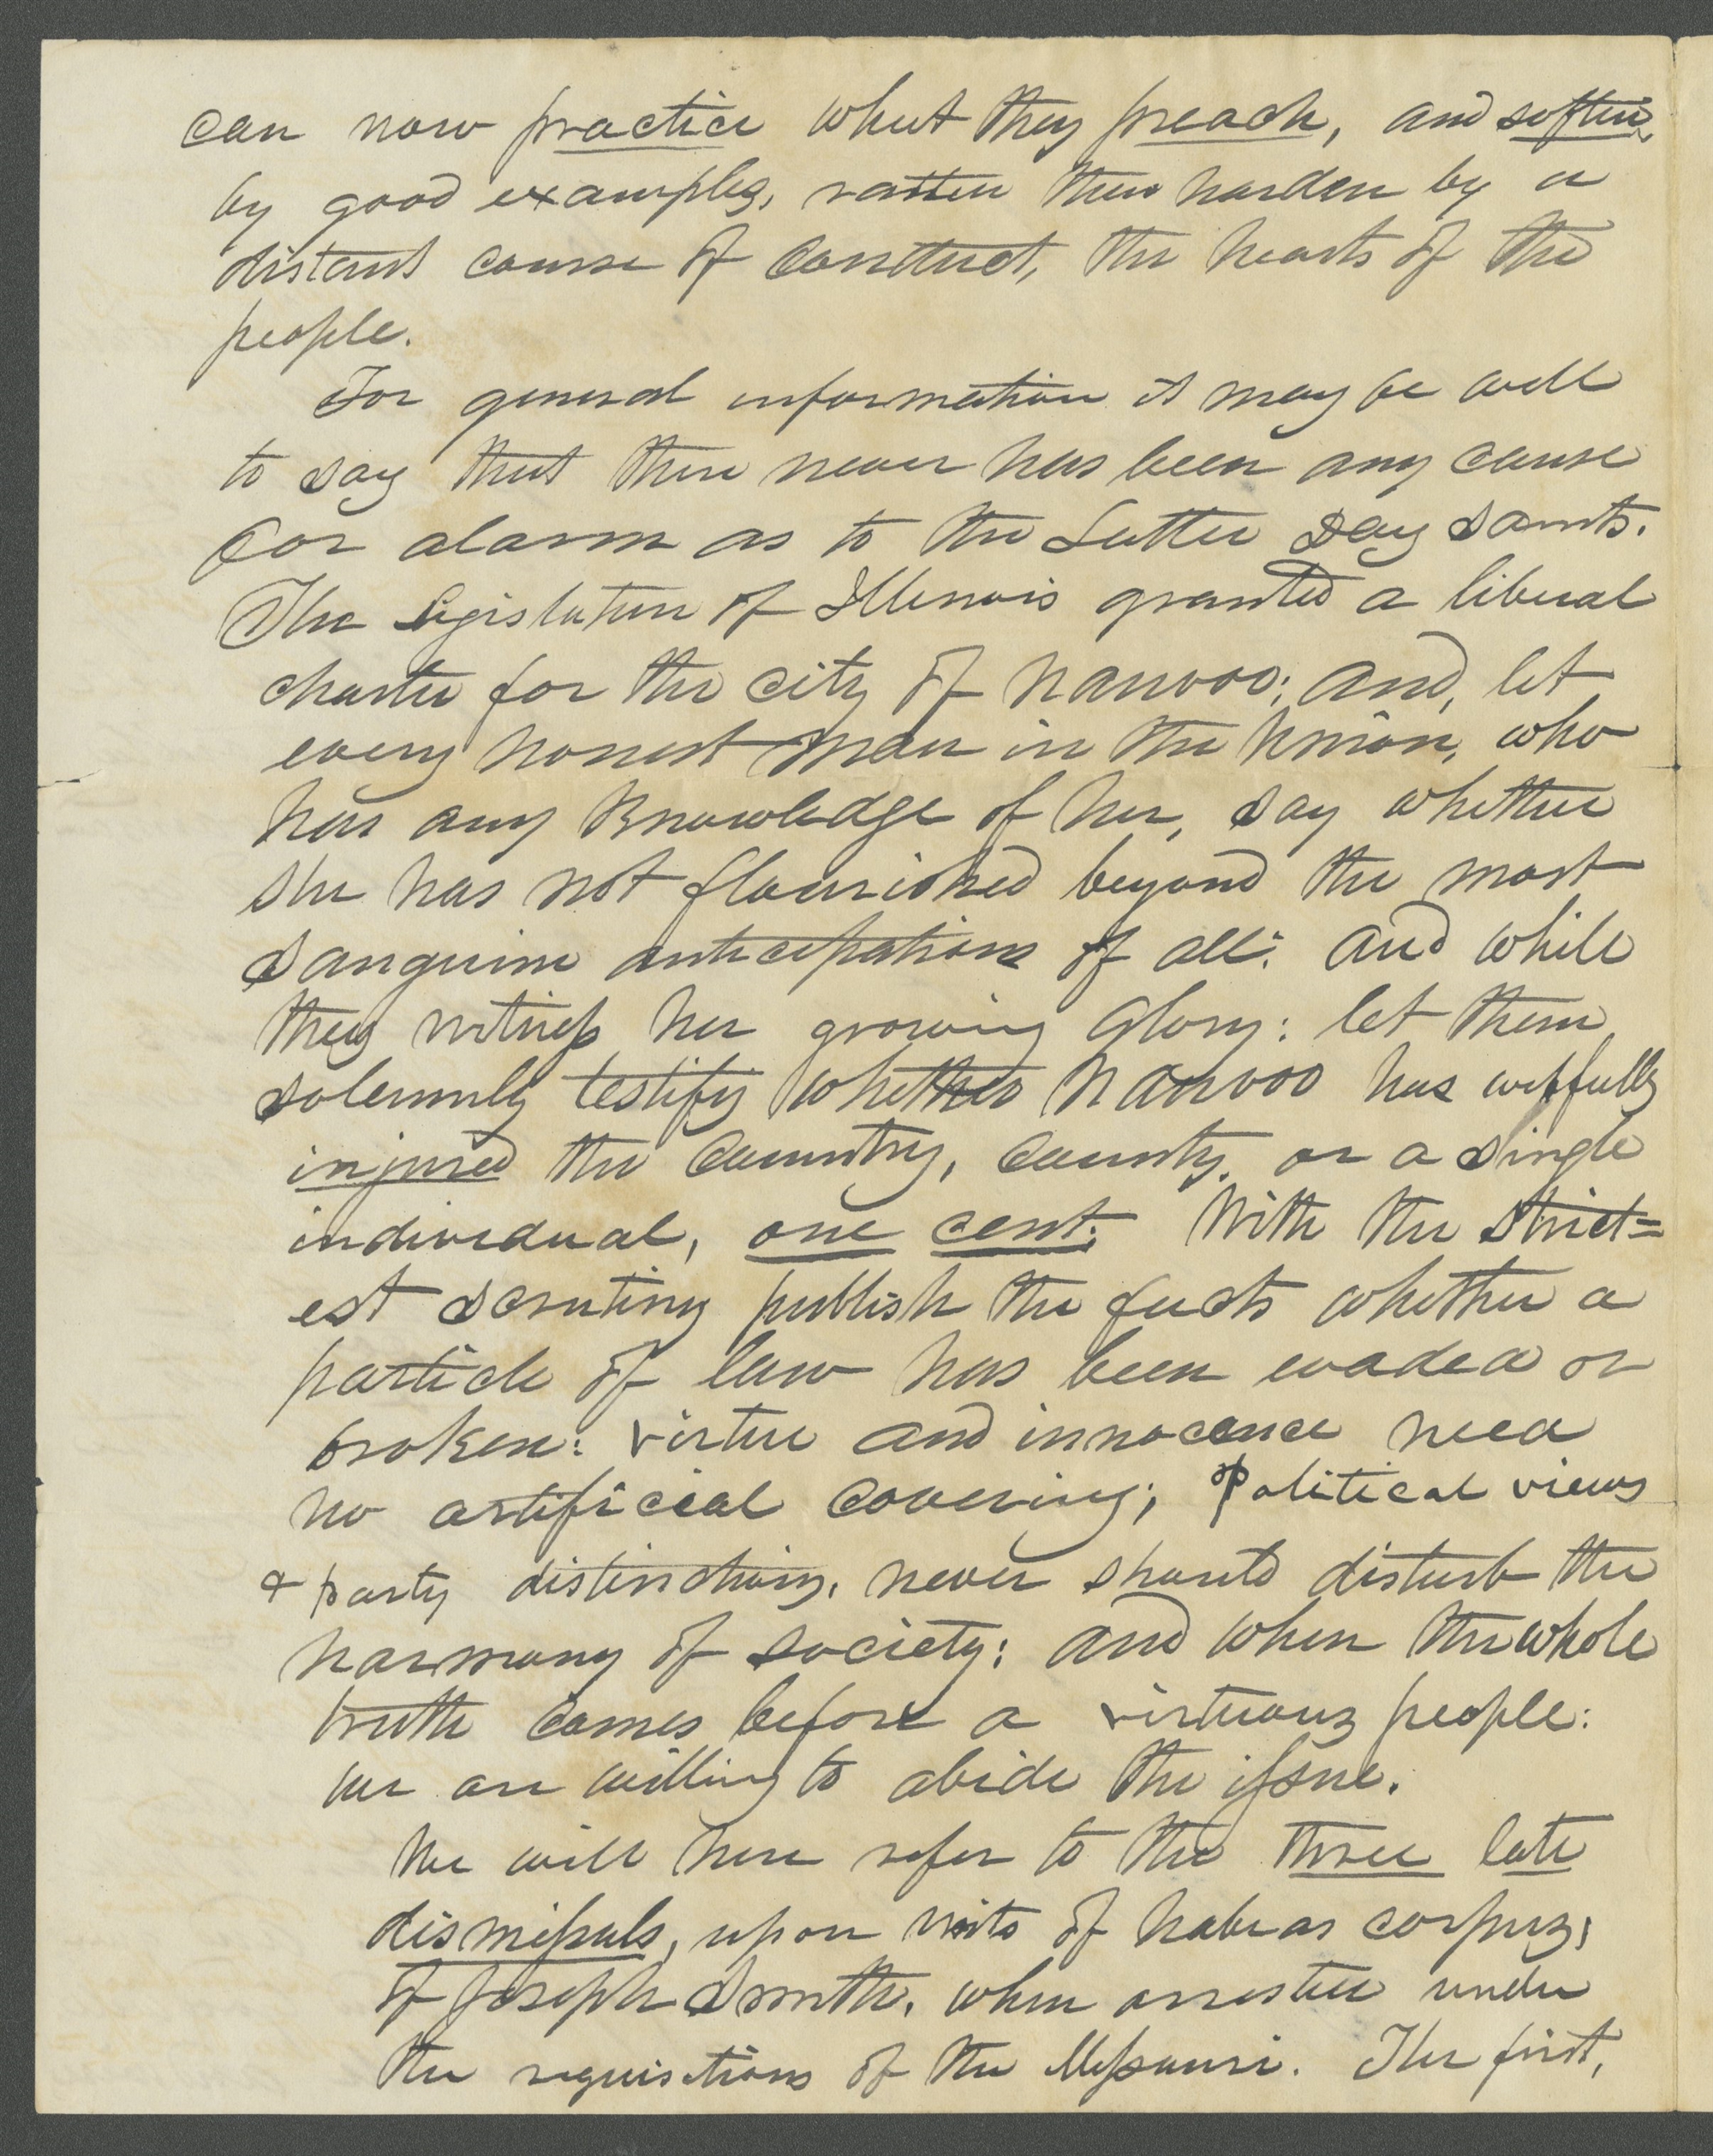 can now practice what they preach, and soften,
by good examples, rather than harden by a
distant course of conduct, the hearts of the
people.
For general information it may be well
to say that there never has been any cause
for alarm as to the Latter Day Saints.
The legislature of Illinois granted a liberal
charter for the city of Nauvoo; and, let
every honest man in the Union, who
has any knowledge of her, say whether
she has not flourished beyond the most
sanguine anticipations of all: and while
they witness her growing glory: let them
solemnly testify whether Nauvoo has wilfully
injured the country, county, or a single
individual, one cent. With the strict=
est scrutiny publish the facts whether a
particle of law has been evaded or
broken: virtue and innocence need
no artificial covering; Political views
& party distinctions, never should disturb the
harmony of society: and when the whole
truth comes before a virtuous people:
we are willing to abide the issue.
We will here refer to the three late
dismissals, upon writs of habeas corpus,
of Joseph Smith, when arrested under
the requisitions of the Missouri. The first,